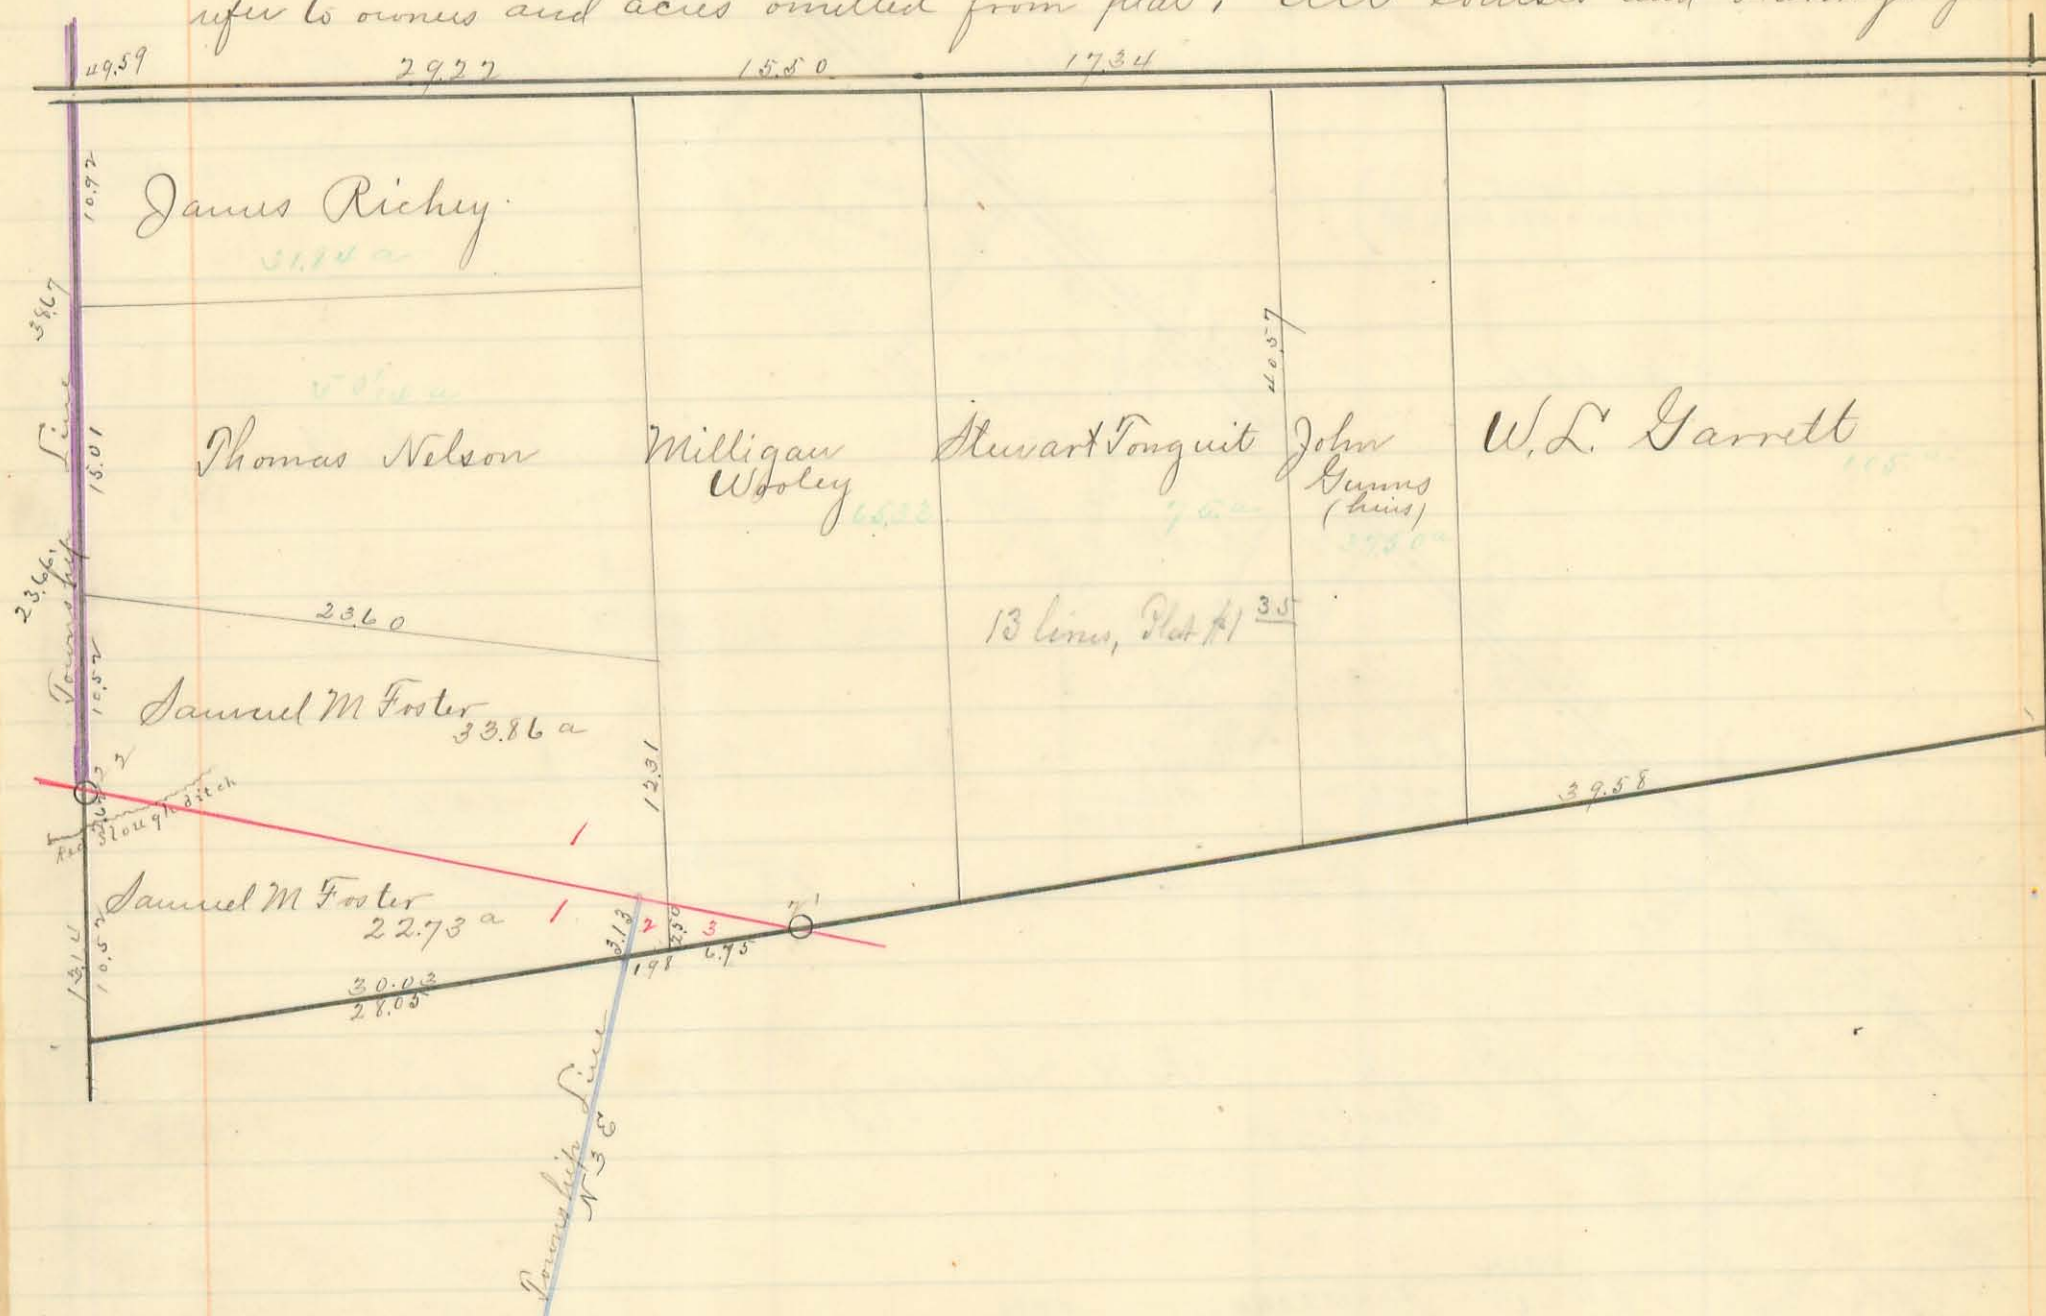 refer to owners and acres omitted from plat. All courses and
49.59 29.22 15.50 17.34
10.92
James Richey
31.84 a
38.67
Township Line
15.01
Thomas Nelson
Milligan
Wooley
65.33
Stewart Tonguit
75 a
40.57
John
Gunns
(heirs)
37.50 a
W. L. Garrett
105 a
23.66
23.60
13 lines, Plat #1 35
10.52
Samuel M Foster
33.86 a
12.31
2
Slough ditch
39.58
1
Samuel M Foster
22.73 a
1
3.13
2
2.50
3
13.14
10.52
1.98
6.75
30.03
28.05
Township Line
N 3 E